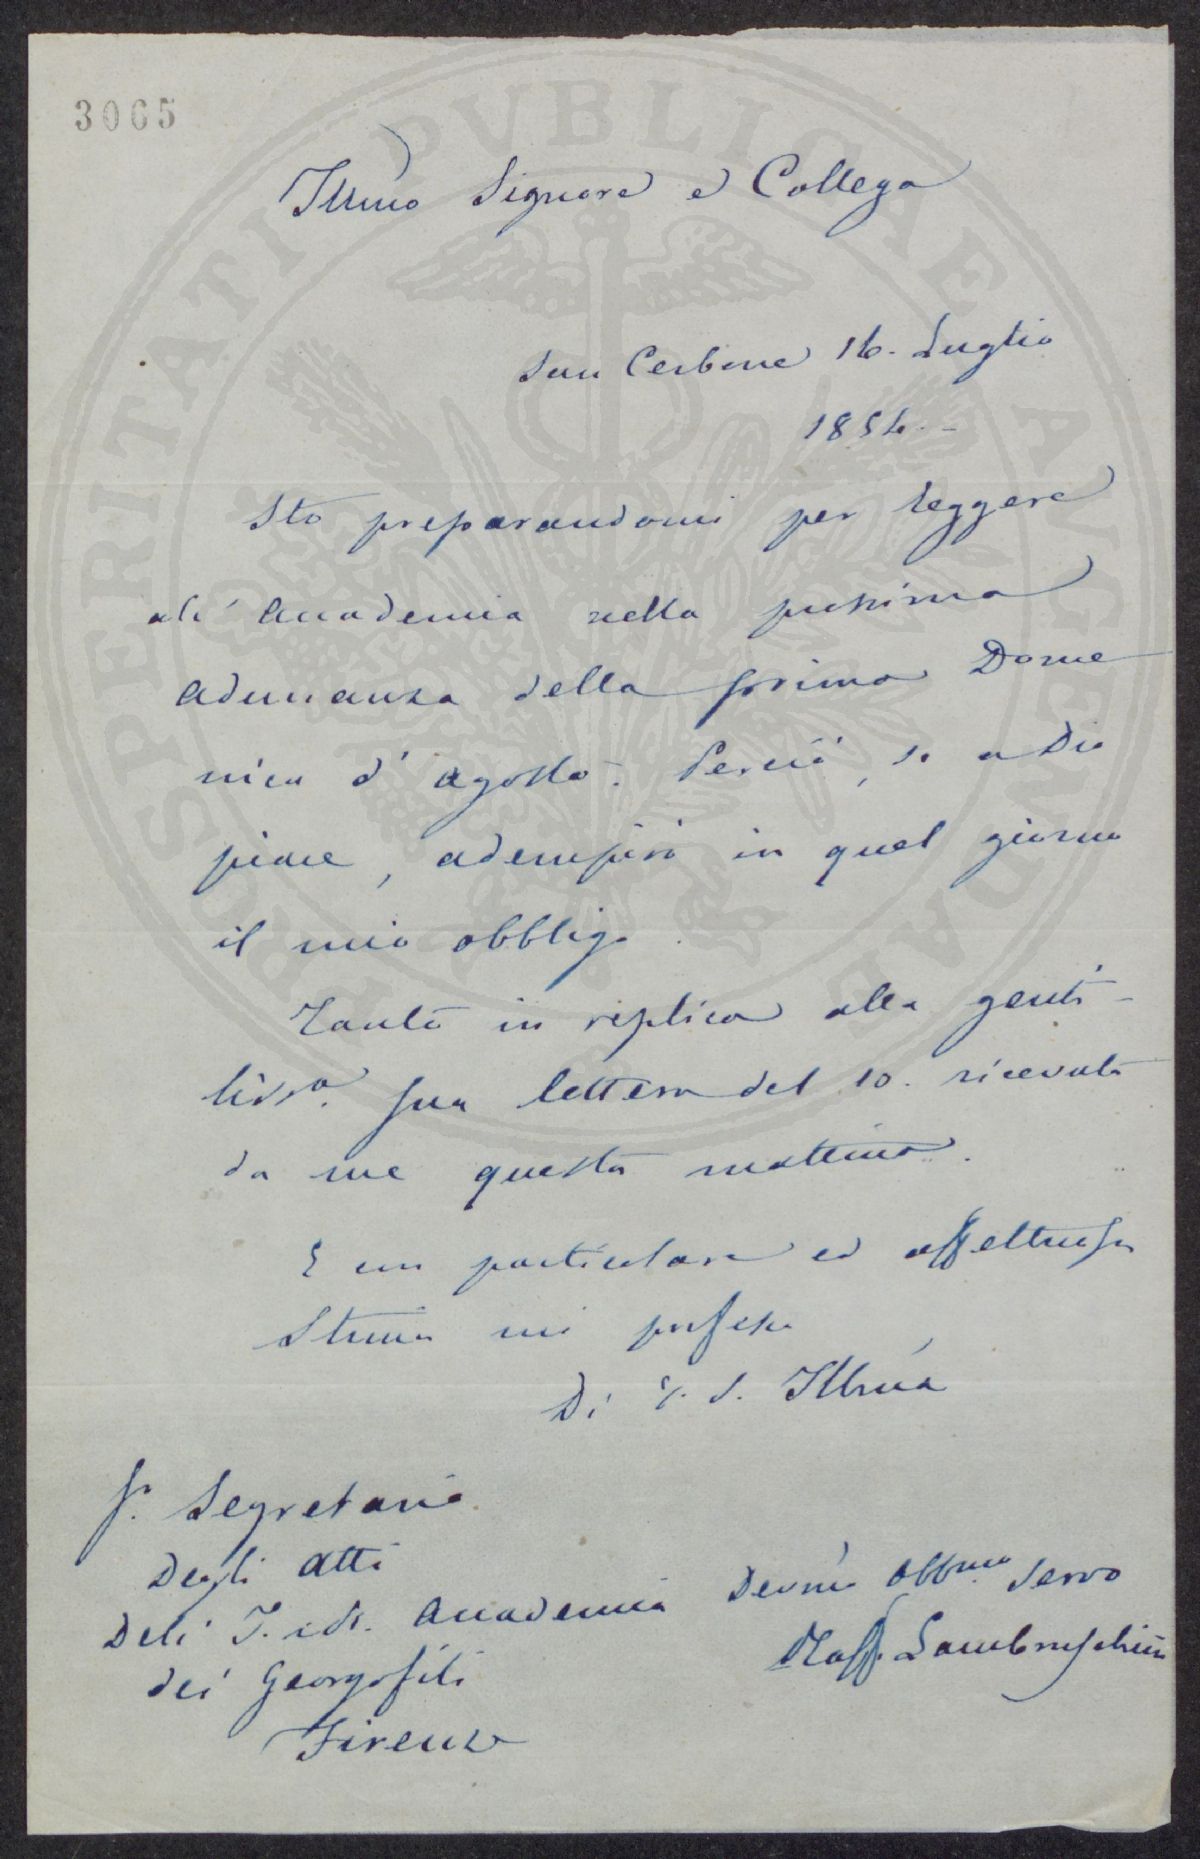 3065
Illmo Signore e Collega
San Cerbone 16. Luglio
1854.
Sto preparandomi per leggere
all' Accademia nella prossima
adunanza della prima Dome
nica d' agosto. Perciò, se a Dio
piace, adempirò in quel giorno
il mio obbligo.
Tanto in replica alla genti-
liss.a sua lettera del 10. ricevuta
da me questa mattina.
E con particolare ed affettuosa
stima mi professo
Di V. S. Illma
S.r Segretario
Degli atti
Dell' I. e R. Accademia
dei Georgofili
Firenze
Devmo Obbmo Servo
Raff. Lambruschini
PROSPERITATI PVBLICAE AVGENDAE